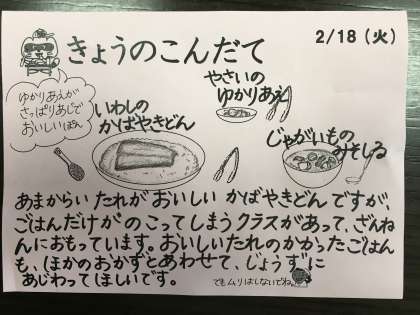 きょうのこんだて
2/18（火）
ゆかりあえが
さっぱりあじで
おいしいぽん
いわしの
かばやきどん
やさいの
ゆかりあえ
じゃがいもの
みそしる
あまからい たれが おいしい かばやきどん ですが、
ごはんだけが のこってしまうクラスがあって、ざんね
んにおもっています。おいしいたれのかかったごはん
も、ほかのおかずとあわせて、じょうずに
あじわって ほしいです。
でもムリはしないでね